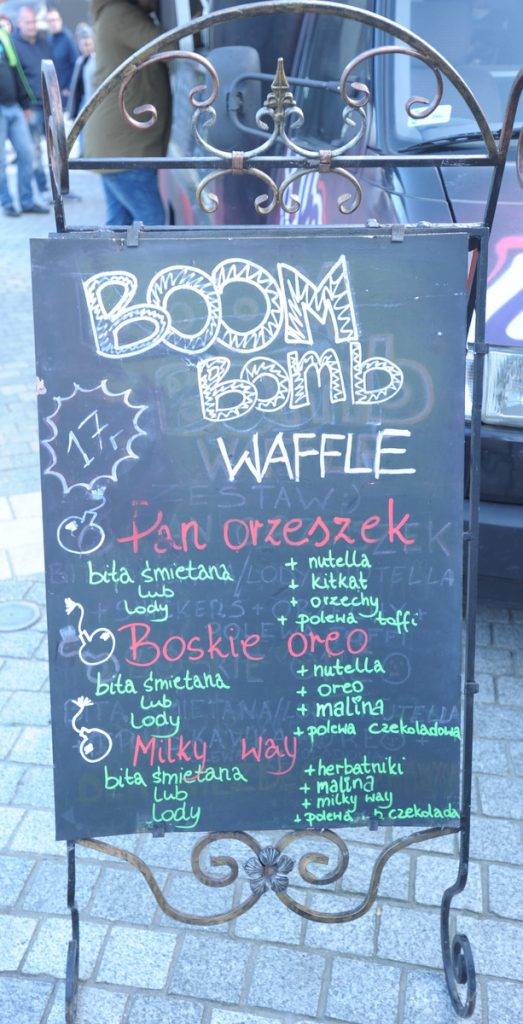 BOOM
Bomb
WAFFLE
17,-
Pan orzeszek
bita śmietana
lub
lody
+ nutella
+ kitkat
+ orzechy
+ polewa toffi
Boskie oreo
bita śmietana
lub
lody
+ nutella
+ oreo
+ malina
+ polewa czekoladowa
Milky way
bita śmietana
lub
lody
+ herbatniki
+ malina
+ milky way
+ polewa b czekolada